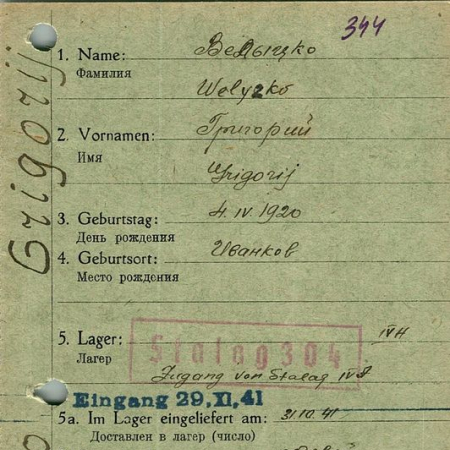 344
1. Name: Велыцко
Фамилия
Welyzko
2. Vornamen: Григорий
Имя
Grigorij
3. Geburtstag: 4.IV.1920
День рождения
4. Geburtsort: Иванков
Место рождения
5. Lager: IV H
Лагер
Stalag 304
Zugang von Stalag IV
Eingang 29.XI.41
5a. Im Lager eingeliefert am: 31.10.41
Доставлен в лагер (число)
Grigorij